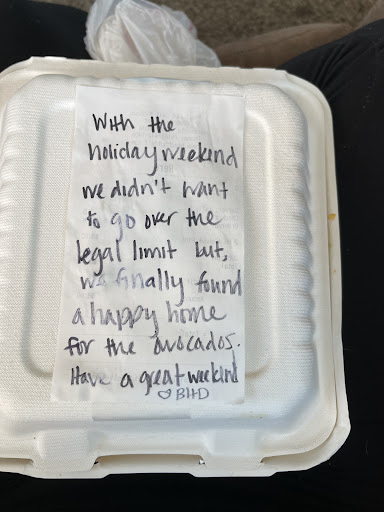 With the
holiday weekend
we didn't want
to go over the
legal limit but,
we finally found
a happy home
for the avocados.
Have a great weekend
♡ BHD